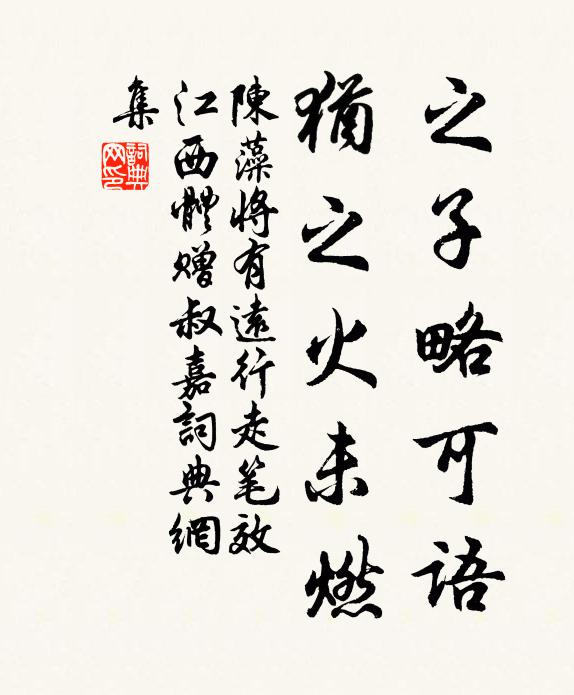 之子略可語
猶之火未燃
陳藻將有遠行走笔效
江西體贈叔嘉詞典網
集
詞典
网印